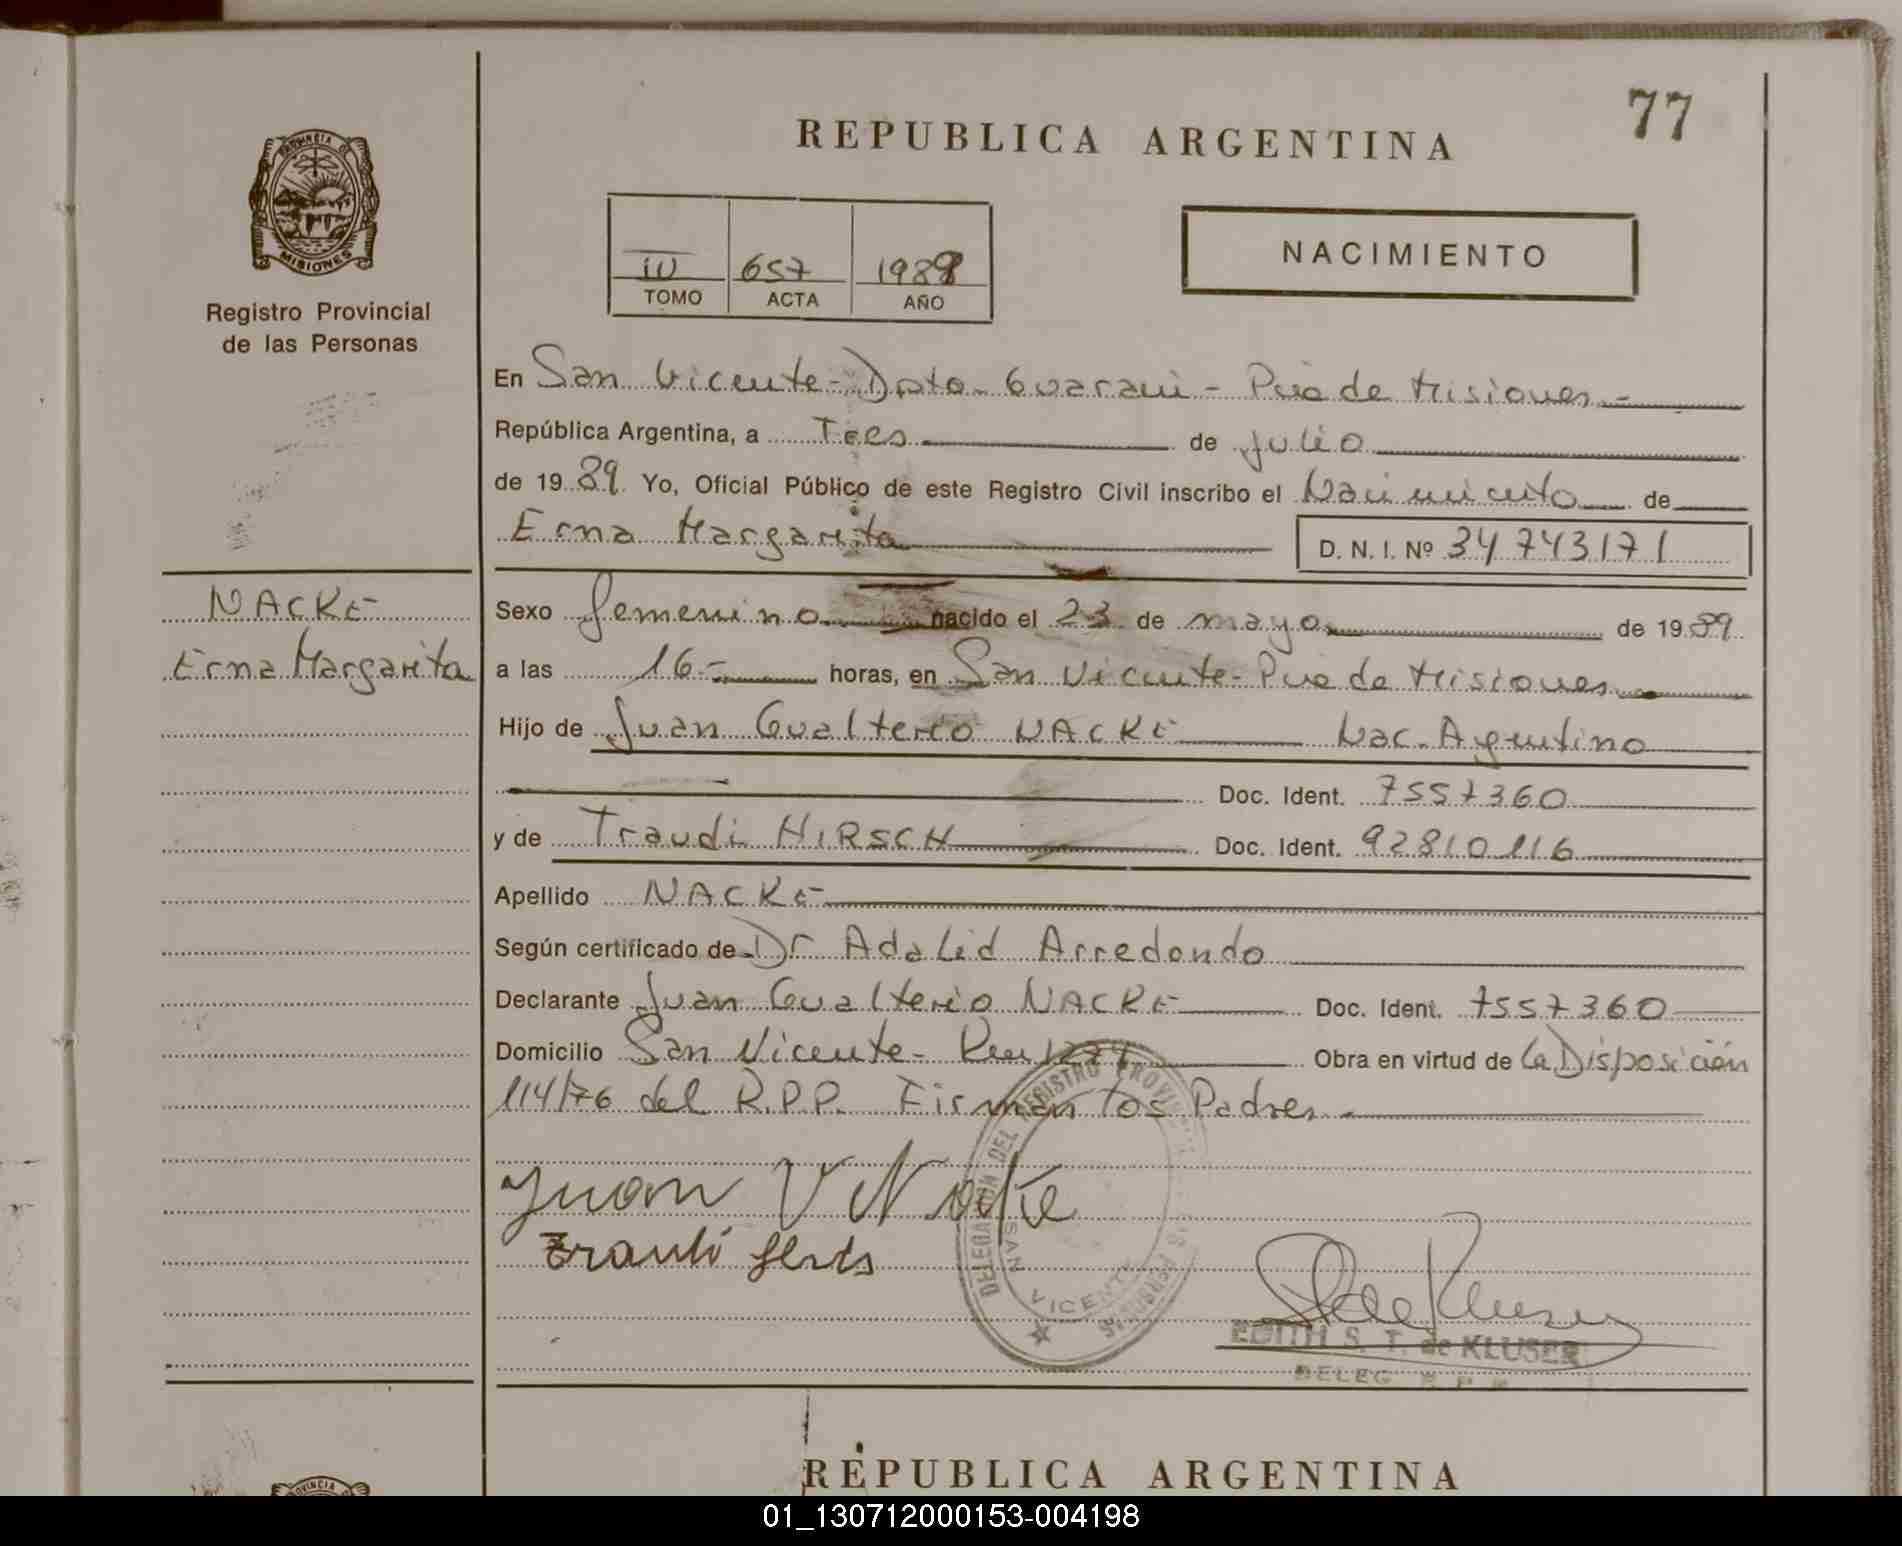 77
REPUBLICA ARGENTINA
PROVINCIA DE
MISIONES
Registro Provincial
de las Personas
IV 657 1989
TOMO ACTA AÑO
NACIMIENTO
En San Vicente - Dpto. Guarani - Pcia de Misiones.-
República Argentina, a Tres de Julio
de 1989. Yo, Oficial Público de este Registro Civil inscribo el Nacimiento de
Erna Margarita D. N. I. Nº 34743171
NACKE
Erna Margarita
Sexo femenino nacido el 23 de mayo de 1989
a las 16.- horas, en San Vicente - Pcia de Misiones
Hijo de Juan Gualterio NACKE Nac. Argentino
Doc. Ident. 7557360
y de Traudi HIRSCH Doc. Ident. 92810116
Apellido NACKE
Según certificado de Dr Adalid Arredondo
Declarante Juan Gualterio NACKE Doc. Ident. 7557360
Domicilio San Vicente - Km 1271 Obra en virtud de La Disposición
114/76 del R.P.P. Firman los Padres.
DELEGACION DEL REGISTRO PROVINCIAL
PERSONAS
SAN VICENTE
Juan
EDITH S. T. de KLUSER
DELEG. R. P. P.
PROVINCIA
REPUBLICA ARGENTINA
01_130712000153-004198